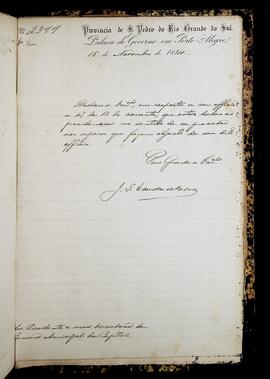 Nº 2399
Provincia de S. Pedro do Rio Grande do Sul.
Palacio do Governo em Porto Alegre,
16 de Novembro de 1874.
Declaro a Vmcês em resposta a seu officio
nº 47 de 12 do corrente, que estão dadas as
providencias no sentido de se proceder
aos reparos que fazem objecto de seu dº
officio.
Deus Guarde a Vmcês
Presidente e mais vereadores da
Camara Municipal da Capital.